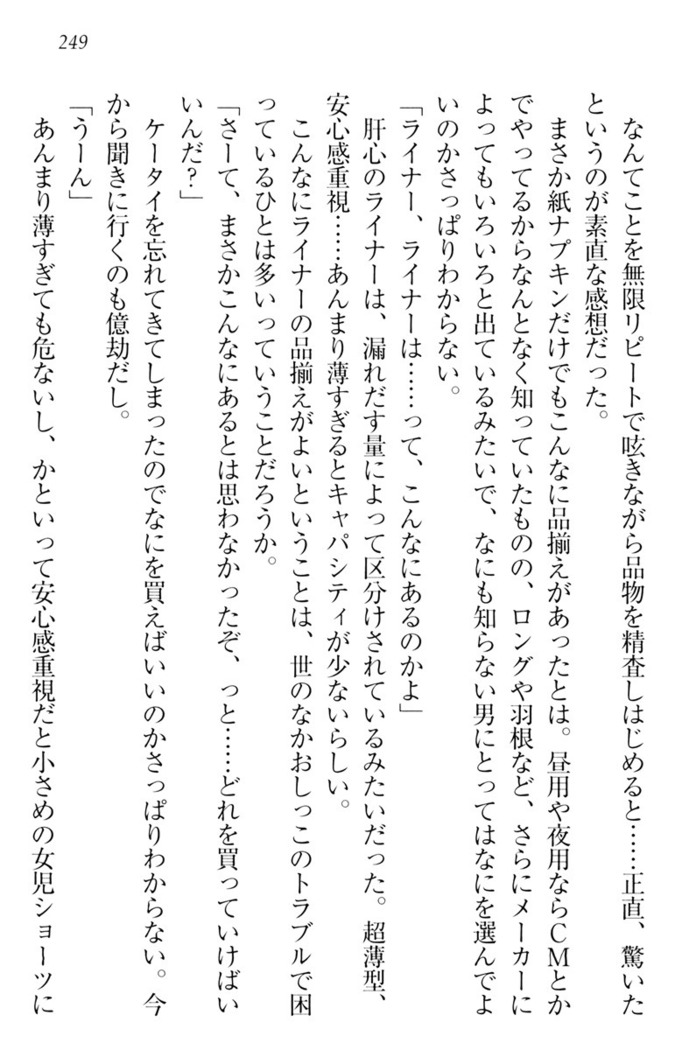 249
なんてことを無限リピートで呟きながら品物を精査しはじめると……正直、驚いた
というのが素直な感想だった。
まさか紙ナプキンだけでもこんなに品揃えがあったとは。昼用や夜用ならCMとか
でやってるからなんとなく知っていたものの、ロングや羽根など、さらにメーカーに
よってもいろいろと出ているみたいで、なにも知らない男にとってはなにを選んでよ
いのかさっぱりわからない。
「ライナー、ライナーは……って、こんなにあるのかよ」
肝心のライナーは、漏れだす量によって区分けされているみたいだった。超薄型、
安心感重視……あんまり薄すぎるとキャパシティが少ないらしい。
こんなにライナーの品揃えがよいということは、世のなかおしっこのトラブルで困
っているひとは多いっていうことだろうか。
「さーて、まさかこんなにあるとは思わなかったぞ、っと……どれを買っていけばい
いんだ?」
ケータイを忘れてきてしまったのでなにを買えばいいのかさっぱりわからない。今
から聞きに行くのも億劫だし。
「うーん」
あんまり薄すぎても危ないし、かといって安心感重視だと小さめの女児ショーツに